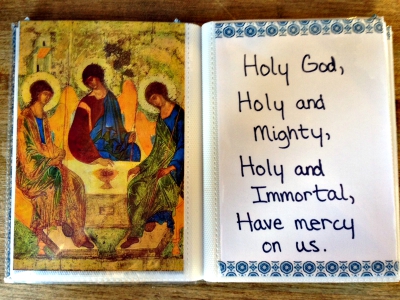 Holy God,
Holy and
Mighty,
Holy and
Immortal,
Have mercy
on us.